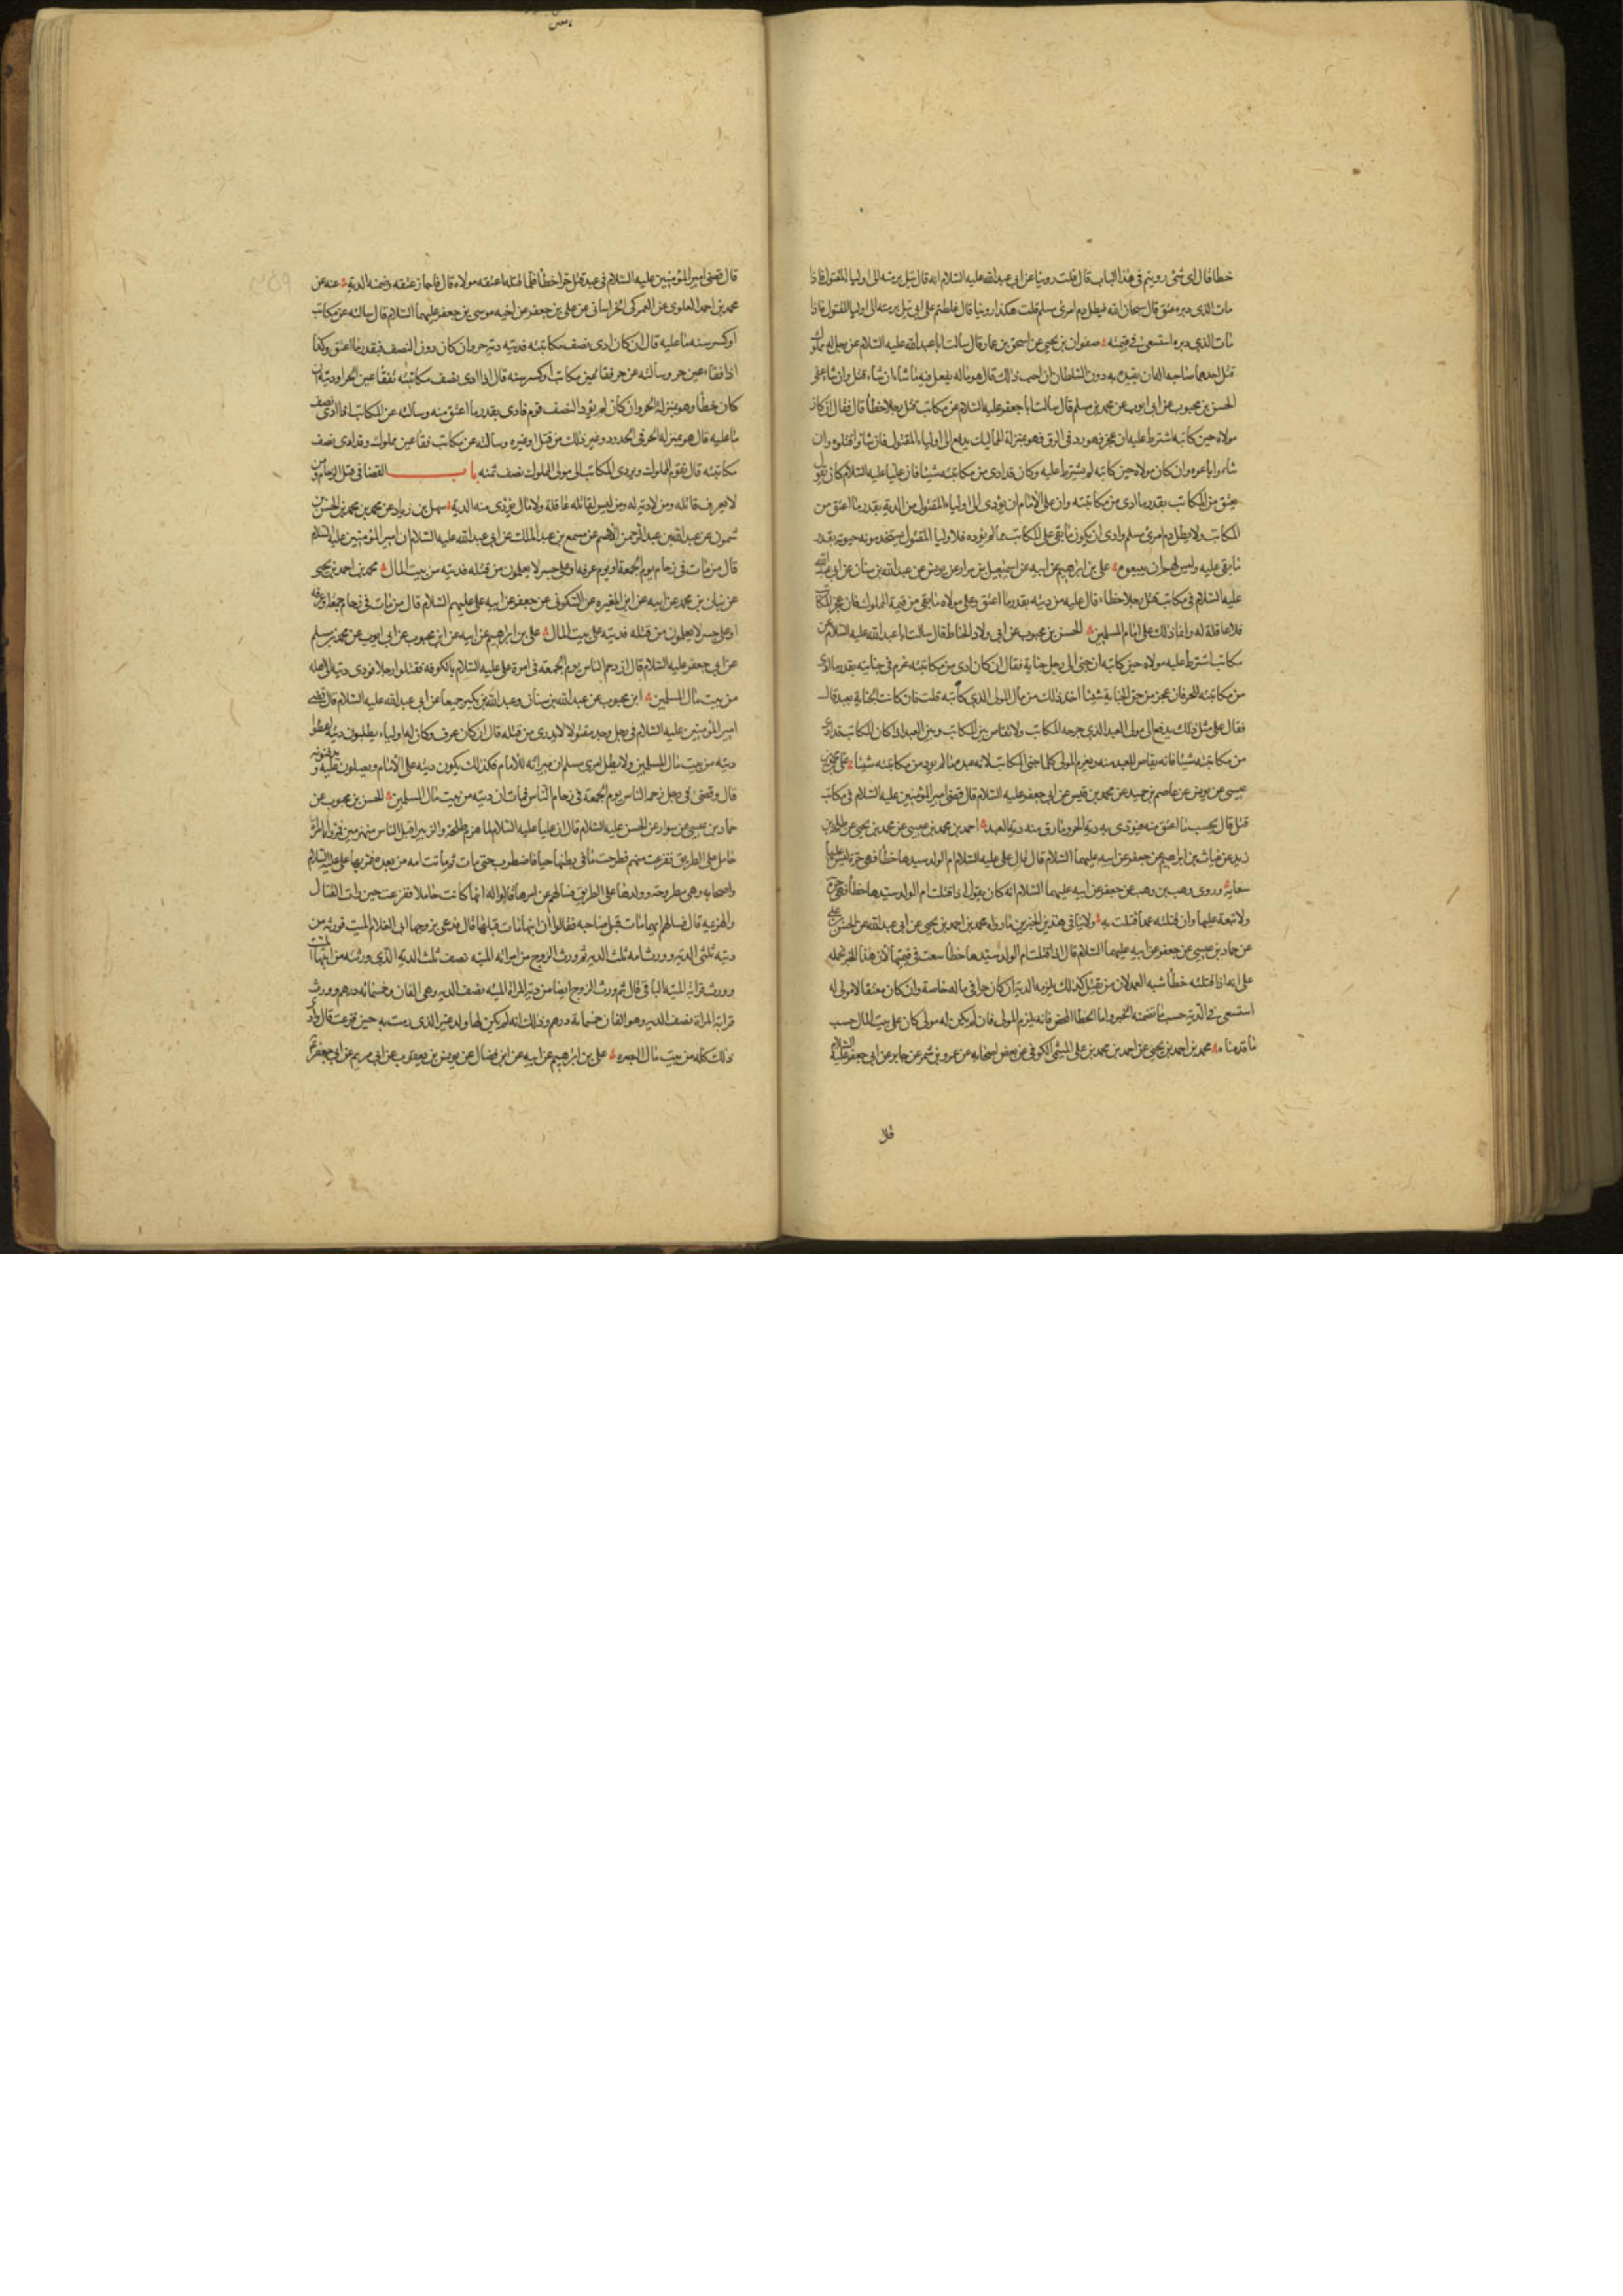 خطا فقال لي شئ رويتم في هذا الباب قال قلت روينا عن ابي عبدالله عليه السلام انه قال يتل برمته الى اولياء المقتول فاذا
مات الذي دبره عتق قال سبحان الله فيطل دم امرئ مسلم قلت هكذا روينا قال غلطتم على ابي يتل برمته الى اولياء المقتول فاذا
مات الذي دبره استسعى في قيمته صفوان بن يحيى عن اسحق بن عمار قال سالت ابا عبدالله عليه السلام عن رجل له مملوكان
قتل احدهما صاحبه اله ان يقيده به دون السلطان ان احب ذلك قال هو ماله يفعل فيه ما شاء ان شاء قتل وان شاء عفى
الحسن بن محبوب عن ابي ايوب عن محمد بن مسلم قال سالت ابا جعفر عليه السلام عن مكاتب قتل رجلا خطأ قال فقال ان كان
مولاه حين كاتبه اشترط عليه ان عجز فهو رد في الرق فهو بمنزلة المماليك يدفع الى اولياء المقتول فان شاؤا قتلوه وان
شاءوا باعوه وان كان مولاه حين كاتبه لم يشترط عليه وكان قد ادى من مكاتبته شيئا فان عليا عليه السلام كان يقول
يعتق من المكاتب بقدر ما ادى من مكاتبته وان على الامام ان يؤدى الى اولياء المقتول من الدية بقدر ما اعتق من
المكاتب ولا يطل دم امرئ مسلم وارى ان يكون ما بقى على المكاتب مما لم يؤده فلاولياء المقتول يستخدمونه حيوته بقدر
ما بقى عليه وليس لهم ان يبيعوه على بن ابراهيم عن ابيه عن اسمعيل بن مرار عن يونس عن عبدالله بن سنان عن ابي عبدالله
عليه السلام في مكاتب قتل رجلا خطاء قال عليه من ديته بقدر ما اعتق وعلى مولاه ما بقى من قيمة المملوك فان عجز المكاتب
فلا عاقلة له وانما ذلك على امام المسلمين الحسن بن محبوب عن ابي ولاد الحناط قال سالت ابا عبدالله عليه السلام عن
مكاتب اشترط عليه مولاه حين كاتبه ان جنى الى رجل جناية فقال ان كان ادى من مكاتبته غرم في جنايته بقدر ما ادى
من مكاتبته للحر فان عجز من حق الجناية شيئا اخذ ذلك من مال المولى الذي كاتبه قلت فان كانت الجناية بعبد قال
فقال على مثل ذلك يدفع الى مولى العبد الذي جرحه المكاتب ولا تقاص بين المكاتب وبين العبد اذا كان المكاتب قد ادى
من مكاتبته شيئا فانه يقاص للعبد منه ويغرم المولى كلما جنى المكاتب لانه عبده ما لم يؤد من مكاتبته شيئا على عن محمد بن
عيسى عن يونس عن عاصم بن حميد عن محمد بن قيس عن ابي جعفر عليه السلام قال قضى امير المؤمنين عليه السلام في مكاتب
قتل قال يحسب ما اعتق منه فيؤدى به دية الحر وما رق منه دية العبد احمد بن محمد بن عيسى عن محمد بن يحيى عن طلحة بن
زيد عن غياث بن ابراهيم عن جعفر عن ابيه عليهما السلام قال قال على عليه السلام ام الولد سيدها خطأ فهي حرة ليس عليها
سعاية وروى وهب بن وهب عن جعفر عن ابيه عليهما السلام انه كان يقول اذا قتلت ام الولد سيدها خطأ فهي حرة
ولا تبعة عليها وان قتلته عمدا قتلت به ولا ينافي هذين الخبرين ما رواه محمد بن احمد بن يحيى عن ابي عبدالله عن الحسن بن على
عن حماد بن عيسى عن جعفر عن ابيه عليهما السلام قال اذا قتلت ام الولد سيدها خطأ سعت في قيمتها لان هذا الخبر نحمله
على انه اذا قتلته خطأ شبه العمد لان من يقتل كذلك يلزمه الدية ان كان حرا في ماله خاصة وان كان معتقا لا مولى له
استسعى في الدية حسب ما تضمنه الخبر واما الخطا المحض فانه يلزم المولى فان لم يكن له مولى كان على بيت المال حسب
ما قدمناه محمد بن احمد بن يحيى عن احمد بن محمد بن على الميثمى الكوفى عن بعض اصحابه عن عمرو بن شمر عن جابر عن ابي جعفر عليه السلام
قال
قال قضى امير المؤمنين عليه السلام في عبد قتل حرا خطأ فلما قتله اعتقه مولاه قال فاجاز عتقه وضمنه الدية عنه عن
محمد بن احمد العلوى عن العمركى الخراساني عن على بن جعفر عن اخيه موسى بن جعفر عليهما السلام قال سالته عن مكاتب
او كسر سنه ما عليه قال ان كان ادى نصف مكاتبته فديته دية حر وان كان دون النصف فبقدر ما اعتق وكذا
اذا فقاء عين حر وسألته عن حر فقا عين مكاتب او كسر سنه قال اذا ادى نصف مكاتبته تفقا عين الحر او ديته ان
كان خطأ وهو بمنزلة الحر وان كان لم يؤد النصف قوم فادى بقدر ما اعتق منه وسالته عن المكاتب اذا ادى نصف
ما عليه قال هو بمنزلة الحر في الحدود وغير ذلك من قتل او غيره وسالته عن مكاتب فقا عين مملوك وقد ادى نصف
مكاتبته قال يقوم المملوك ويردى المكاتب الى مولى المملوك نصف ثمنه باب القضا في قتل الزحام ومن
لا يعرف قاتله ومن لا دية له ومن ليس لقاتله عاقلة ولا مال يؤدى منه الدية سهل بن زياد عن محمد بن محمد بن الحسن بن
شمون عن عبدالله بن عبدالرحمن الاصم عن مسمع بن عبدالملك عن ابي عبدالله عليه السلام ان امير المؤمنين عليه السلام
قال من مات في زحام يوم الجمعة او يوم عرفه او على جسر لا يعلمون من قتله فديته من بيت المال محمد بن احمد بن يحيى
عن بنان بن محمد عن ابيه عن ابن المغيره عن السكونى عن جعفر عن ابيه على عليهم السلام قال من مات في زحام جمعة او عرفه
او على جسر لا يعلمون من قتله فديته على بيت المال على بن ابراهيم عن ابيه عن ابن محبوب عن ابي ايوب عن محمد بن مسلم
عن ابي جعفر عليه السلام قال ازدحم الناس يوم الجمعة في امرة على عليه السلام بالكوفه فقتلوا رجلا فودى ديته الى اهله
من بيت مال المسلمين ابن محبوب عن عبدالله بن سنان وعبدالله بن بكير جميعا عن ابي عبدالله عليه السلام قال قضى
امير المؤمنين عليه السلام في رجل وجد مقتولا لا يدرى من قتله قال ان كان عرف وكان له اولياء يطلبون ديته اعطوا
ديته من بيت مال المسلمين ولا يطل امرى مسلم لان ميراثه للامام فكذلك يكون ديته على الامام ويصلون عليه ويدفنونه
قال وقضى في رجل زحمه الناس يوم الجمعة في زحام الناس فمات ان ديته من بيت مال المسلمين الحسن بن محبوب عن
حماد بن عيسى عن سوار عن الحسن عليه السلام قال ان عليا عليه السلام لما هزم طلحة والزبير اقبل الناس منهزمين فمروا بامراة
حامل على الطريق ففزعت منهم فطرحت ما في بطنها حيا فاضطرب حتى مات ثم ماتت امه من بعده فمر بها على عليه السلام
واصحابه وهي مطروحة وولدها على الطريق فسالهم عن امرها فقالوا له انها كانت حاملا ففزعت حين رات القتال
والهزيمه قال فسالهم ايهما مات قبل صاحبه فقالوا ان ابنها مات قبلها قال فدعى بزوجها ابى الغلام الميت فورثه من
ديته ثلثى الدية وورث امه ثلث الديه ثم ورث الزوج من امراته الميته نصف ثلث الدية الذي ورثته من ابنها الميت
وورث قرابة الميته الباقى قال ثم ورث الزوج ايضا من دية المراة الميته نصف الديه وهي الفان وخمسمائه درهم وورث
قرابة المراة نصف الديه وهو الفان وخمسماية درهم وذلك انه لم يكن لها ولد غير الذي رمت به حين فزعت قال وادى
ذلك كله من بيت مال البصره على بن ابراهيم عن ابيه عن ابن فضال عن يونس بن يعقوب عن ابي مريم عن ابي جعفر